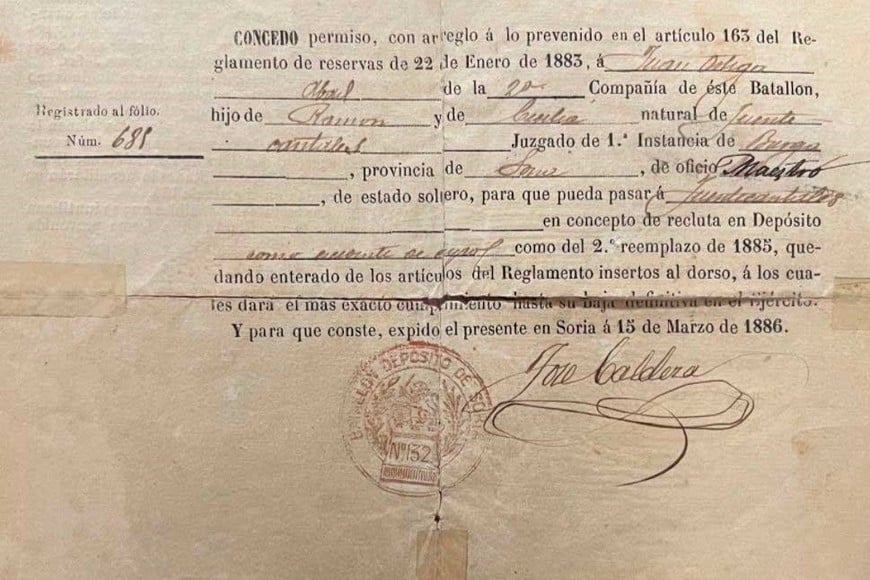 CONCEDO permiso, con arreglo á lo prevenido en el artículo 163 del Re-
glamento de reservas de 22 de Enero de 1883, á Juan Ortega
de la 2ª Compañía de éste Batallon,
hijo de Ramon y de Cecilia natural de Fuente
cantales Juzgado de 1.ª Instancia de
, provincia de Soria, de oficio Maestro
, de estado soltero, para que pueda pasar á Fuentecantales
en concepto de recluta en Depósito
como como del 2.º reemplazo de 1885, que-
dando enterado de los artículos del Reglamento insertos al dorso, á los cua-
les dará el más exacto cumplimiento hasta su baja definitiva en el Ejército.
Y para que conste, expido el presente en Soria á 15 de Marzo de 1886.
Registrado al fólio.
Núm. 681
José Caldera
BATALLON DEPÓSITO DE SORIA
Nº 132